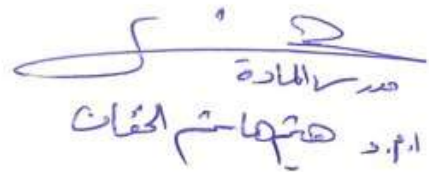 مدرس المادة
ا.م.د هيثم هاشم الخفاف